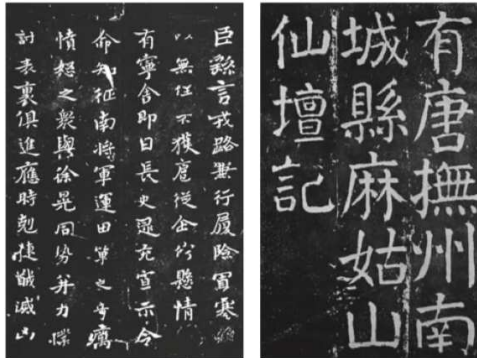 臣繇言戎路兼行履險冒寒臣
以無任不獲扈從企佇懸情
有寧舍即日長史逯充宣示令
命知征南將軍運田單之奇厲
憤怒之衆與徐晃同勢并力撲
討表裏俱進應時剋捷馘滅凶
有唐撫州南
城縣麻姑山
仙壇記